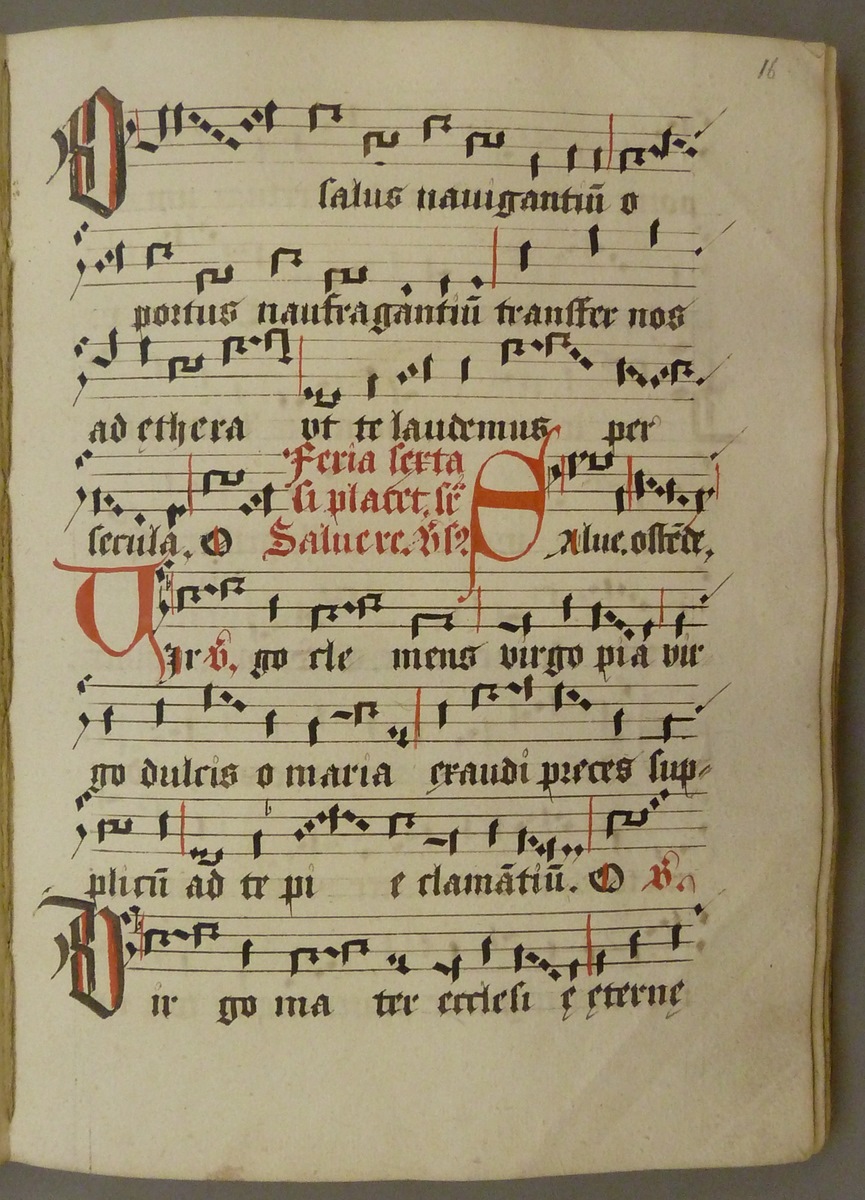 16
O salus nauigantiū o
portus naufragantiū transfer nos
ad ęthera vt te laudemus per
Feria sexta
si placet. sẽ
secula. O Salue re. v̄s S alue. ostēde.
V ir v̄. go cle mens virgo pia vir
go dulcis o maria exaudi preces sup⸗
plicū ad te pi e clamātiū. O v̄.
V ir go ma ter ecclesi ę ęternę